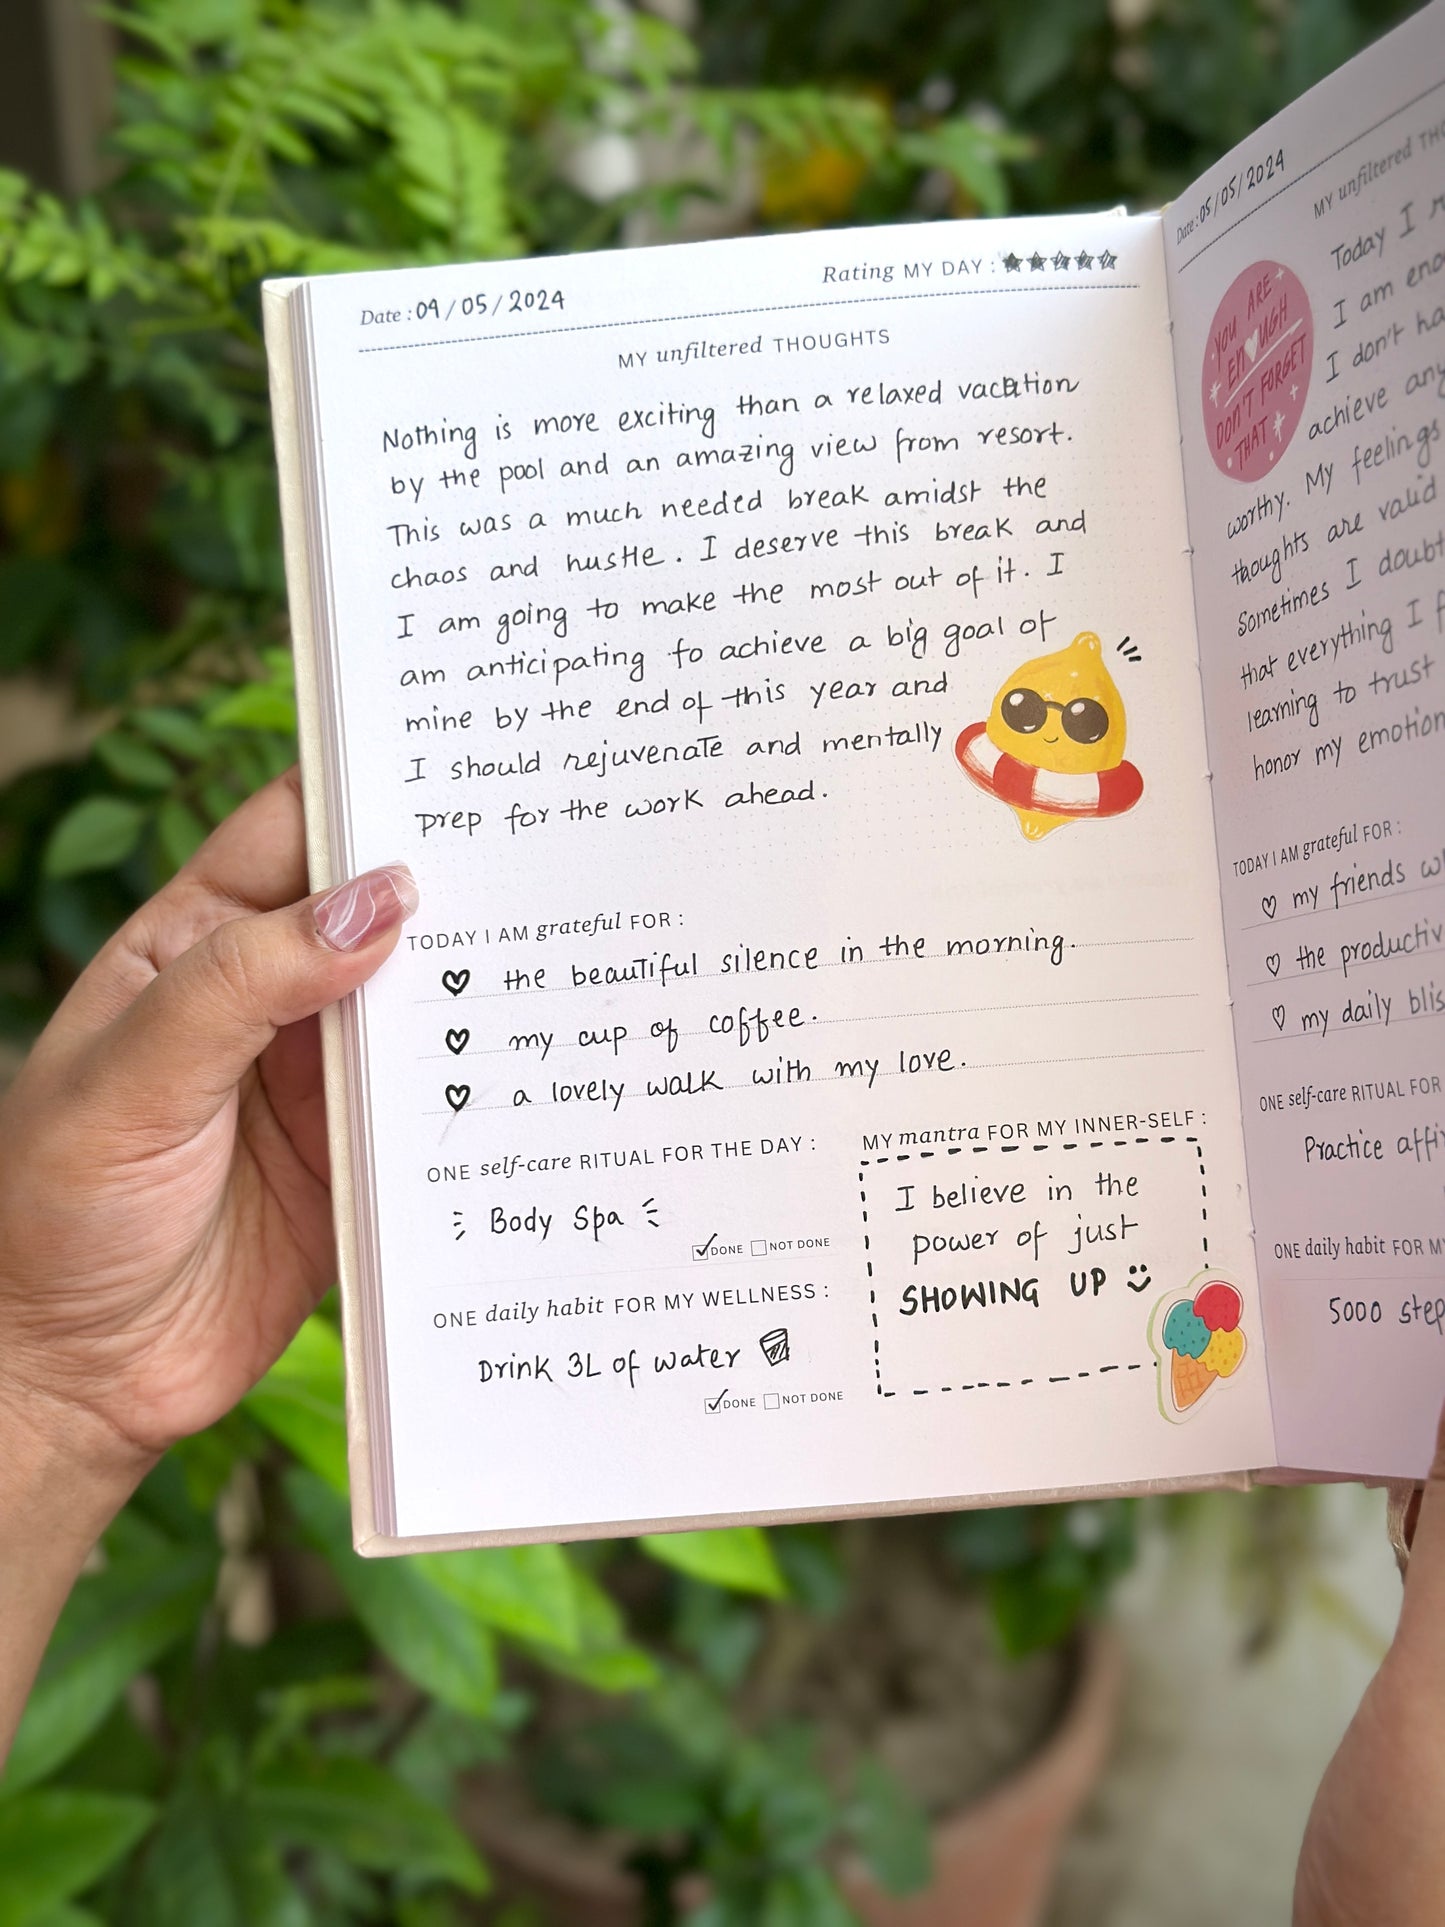 Date : 04/05/2024
Rating MY DAY :
MY unfiltered THOUGHTS
Nothing is more exciting than a relaxed vacation
by the pool and an amazing view from resort.
This was a much needed break amidst the
chaos and hustle. I deserve this break and
I am going to make the most out of it. I
am anticipating to achieve a big goal of
mine by the end of this year and
I should rejuvenate and mentally
prep for the work ahead.
TODAY I AM grateful FOR :
the beautiful silence in the morning.
my cup of coffee.
a lovely walk with my love.
ONE self-care RITUAL FOR THE DAY :
Body Spa
DONE NOT DONE
ONE daily habit FOR MY WELLNESS :
Drink 3L of water
DONE NOT DONE
MY mantra FOR MY INNER-SELF :
I believe in the
power of just
SHOWING UP
Date : 05/05/2024
MY unfiltered
YOU ARE
ENOUGH
DON'T FORGET
THAT
Today I
I am
I don't
achieve
worthy. My feelings
thoughts are valid
Sometimes I doubt
that everything I
learning to trust
honor my
TODAY I AM grateful FOR :
my friends
the
my daily
ONE self-care RITUAL FOR
Practice
ONE daily habit FOR
5000